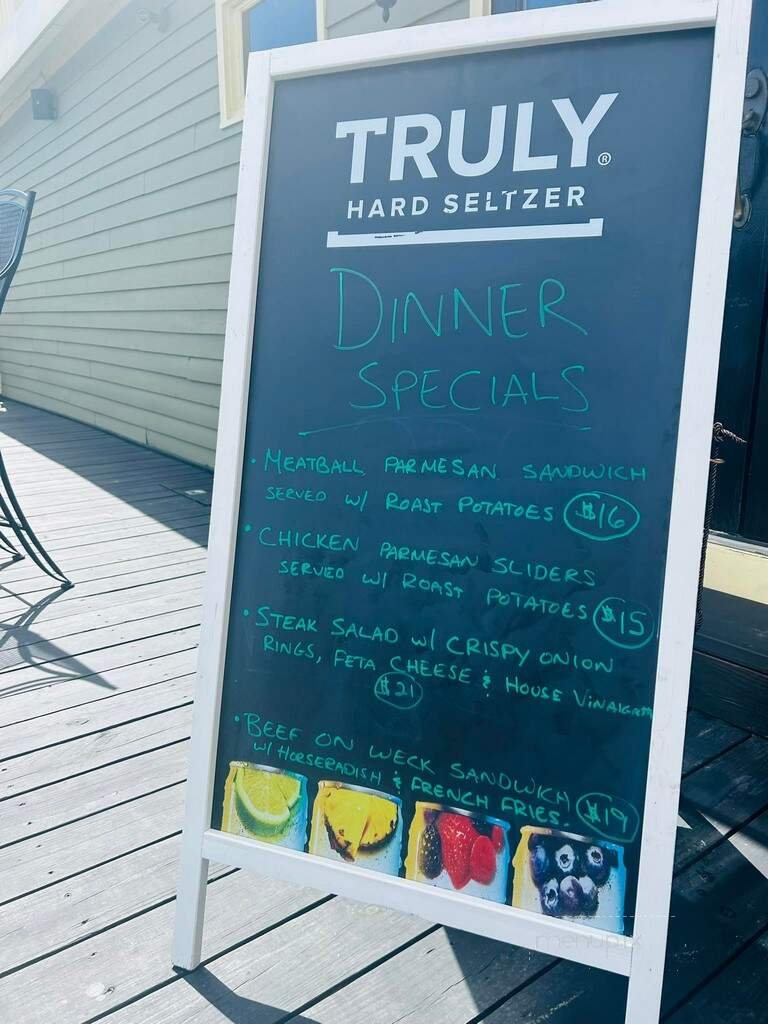 TRULY®
HARD SELTZER
DINNER
SPECIALS
• MEATBALL PARMESAN SANDWICH
SERVED W/ ROAST POTATOES $16
• CHICKEN PARMESAN SLIDERS
SERVED W/ ROAST POTATOES $15
• STEAK SALAD W/ CRISPY ONION
RINGS, FETA CHEESE & HOUSE
$21
• BEEF ON WECK SANDWICH
W/ HORSERADISH & FRENCH FRIES. $19